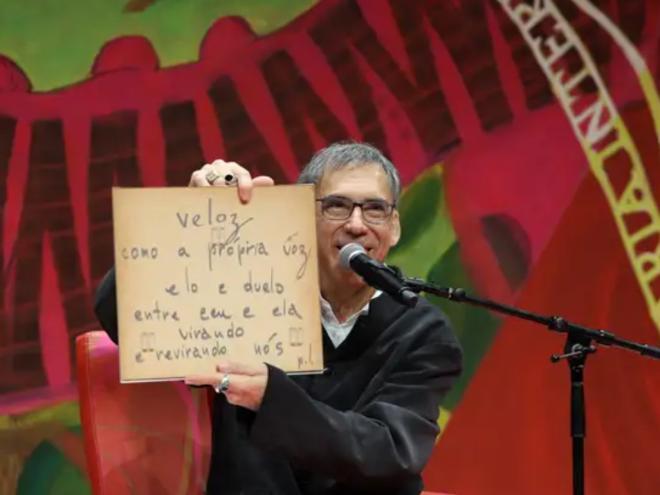 veloz
como a própria voz
elo e duelo
entre eu e ela
virando
e revirando nós
p.l.
RIAINTER